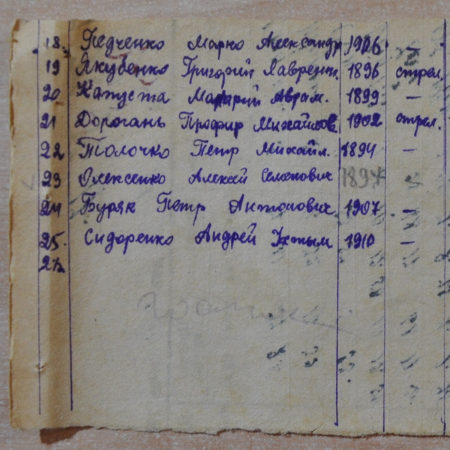 18. Педченко Марко Александр 1906 -
19 Якубенко Григорий Лаврент. 1896 стрел.
20 Капуста Макарий Аврам. 1899 -
21 Дорогань Профир Михайлов. 1902 стрел.
22 Толочко Петр Михайл. 1894 -
23 Олексенко Алексей Семенович 1894 -
24 Буряк Петр Антонович. 1907 -
25. Сидоренко Андрей 1910 -